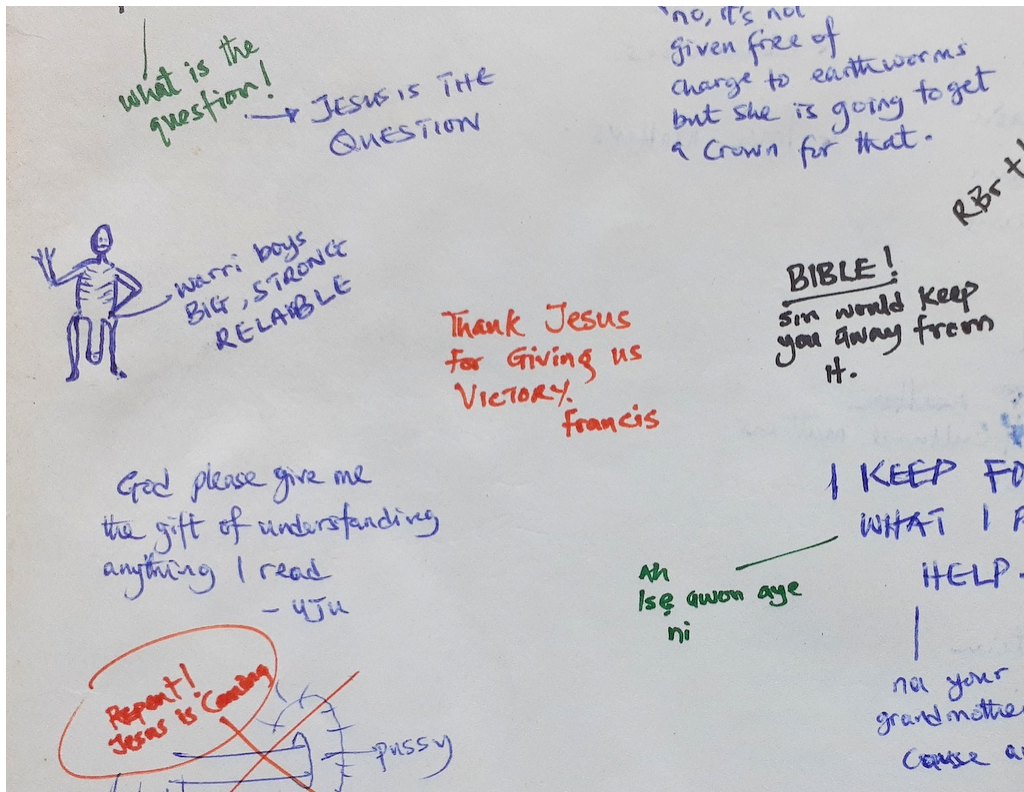 what is the
question!
JESUS IS THE
QUESTION
no, it's not
given free of
charge to earthworms
but she is going to get
a crown for that.
RBr
warri boys
BIG, STRONG
RELAIBLE
BIBLE!
sin would keep
you away from
it.
Thank Jesus
for Giving us
VICTORY.
Francis
God please give me
the gift of understanding
anything I read
- UJU
I KEEP FO
WHAT I
HELP
Ah
Isẹ awon aye
ni
na your
grandmother
cause
Repent!
Jesus is Coming
pussy